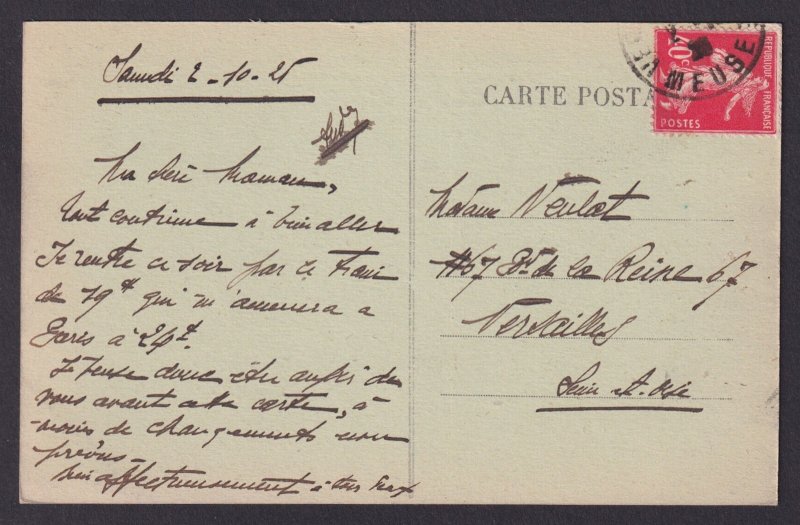 Samedi 2-10-25
Ma chère Maman,
tout continue à bien aller
Je rentre ce soir par le train
de 19h qui m'amènera à
Paris à 24h.
Je pense donc être auprès de
vous avant cette carte, à
moins de changements non
prévus
Bien affectueusement à tous
CARTE POSTA
Madame
67 Bd de la Reine 67
Versailles
Seine-et-Oise
MEUSE
RÉPUBLIQUE FRANÇAISE
POSTES